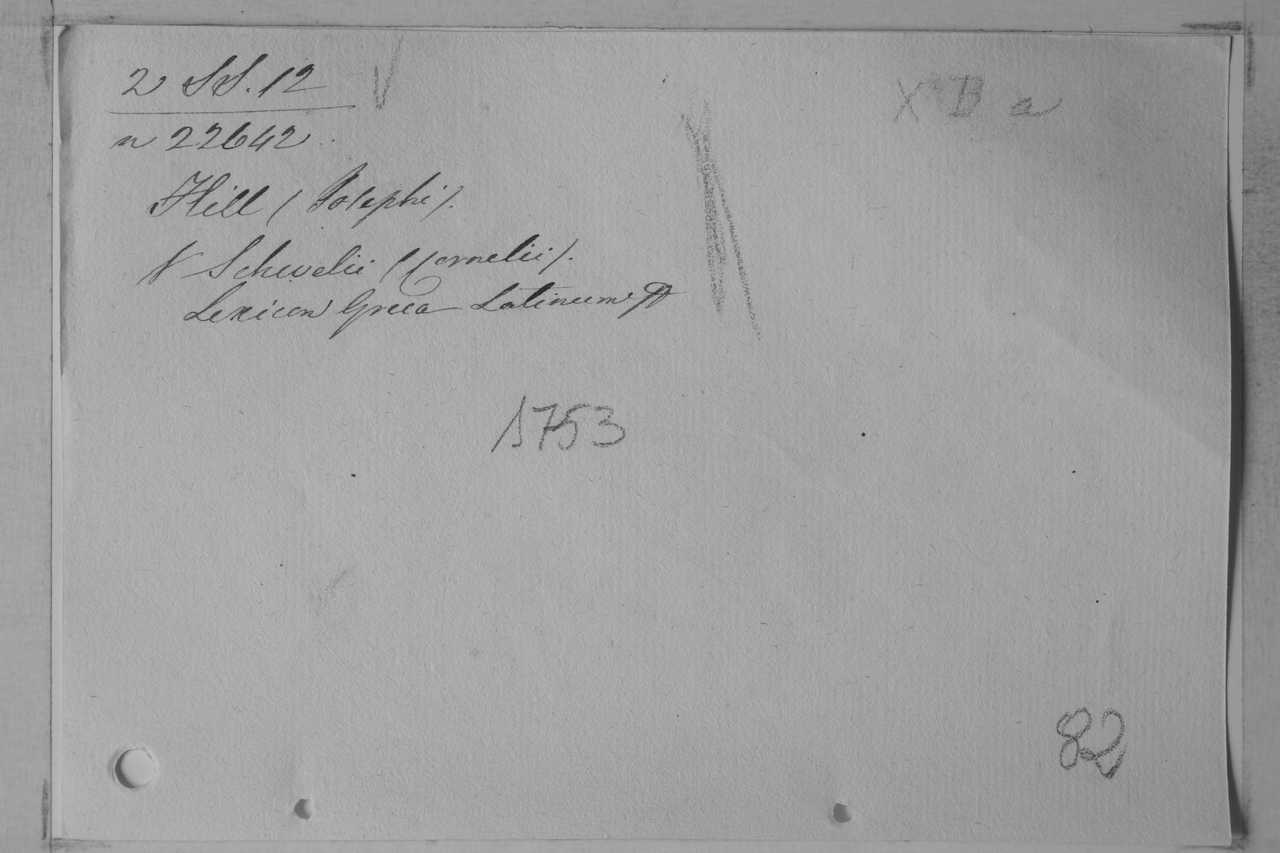 2 SS. 12
X B a
n 22642
Hill (Josephi).
V Schrevelii (Cornelii).
Lexicon Greco Latinum
1753
82